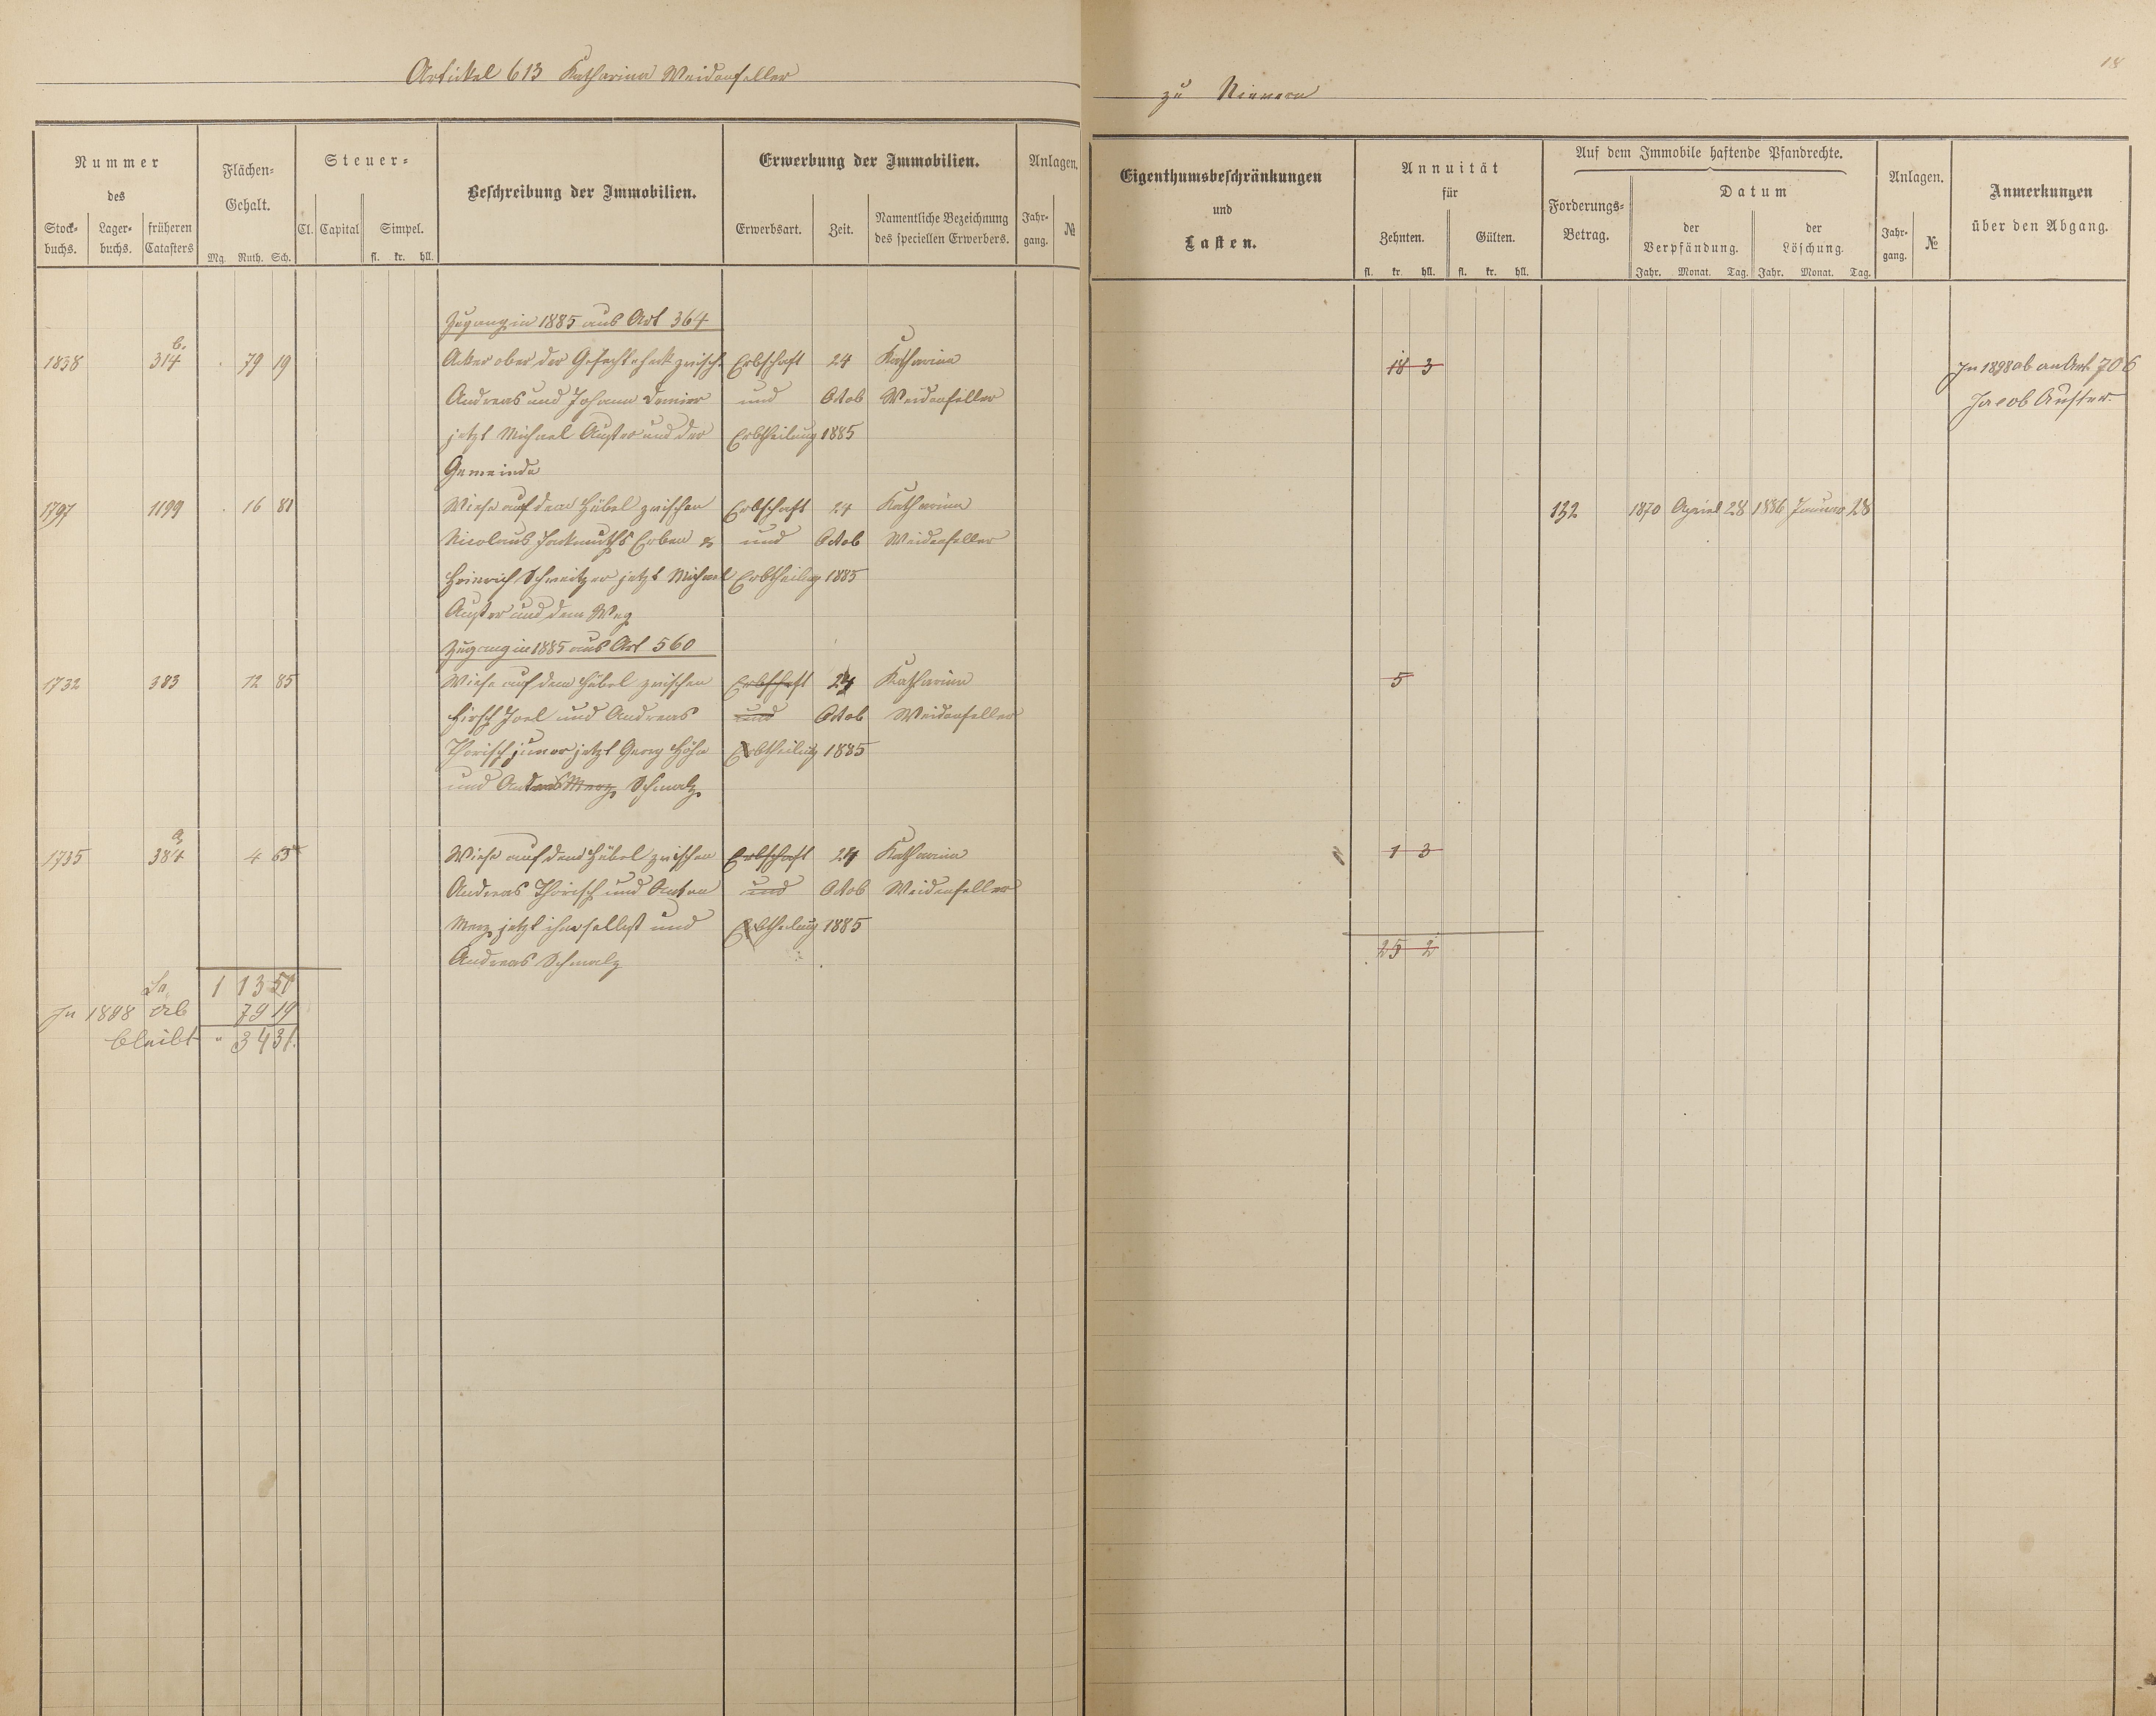 Artickel 613 Katharina Weidenfeller
zu Nievern
18
Nummer
des
Stock-
buchs.
Lager-
buchs.
früheren
Catasters
Flächen-
Gehalt.
Mg. Ruth. Sch.
Steuer-
Cl. Capital Simpel.
fl. kr. hll.
Beschreibung der Immobilien.
Erwerbung der Immobilien.
Erwerbsart. Zeit.
Namentliche Bezeichnung
des speciellen Erwerbers.
Anlagen.
Jahr-
gang.
№
Eigenthumsbeschränkungen
und
Lasten.
Annuität
für
Zehnten. Gülten.
fl. kr. hll. fl. kr. hll.
Auf dem Immobile haftende Pfandrechte.
Forderungs-
Betrag.
Datum
der
Verpfändung.
der
Löschung.
Jahr. Monat. Tag. Jahr. Monat. Tag.
Anlagen.
Jahr-
gang.
№
Anmerkungen
über den Abgang.
Zugang in 1885 aus Art 364
1838 314 b. 79 19 Acker ober der zwisch. Erbschaft 24 Katharina 18 3 In 1898 ab an Art. 706
Andreas und Johann und Octob Weidenfeller Jacob Auster.
jetzt Michael Auster und der Erbtheilung 1885
Gemeinde
1797 1199 16 81 Wiese auf dem Hübel zwischen Erbschaft 24 Katharina 132 1870 Apriel 28 1886 Januar 28
Nicolaus Erben & und Octob Weidenfeller
Heinrich Schweitzer jetzt Michael Erbtheilug 1885
Auster und dem Weg
Zugang in 1885 aus Art 560
1732 383 12 85 Wiese auf dem Hübel zwischen Erbschaft 24 Katharina 5
Hirsch Joel und Andreas und Octob Weidenfeller
Thörisch junior jetzt Georg Höhn Erbtheilung 1885
und Andreas Merz Schmalz
1735 384 a 4 65 Wiese auf dem Hübel zwischen Erbschaft 24 Katharina 1 3
Andreas Thörisch und Anton und Octob Weidenfeller
Merz jetzt ihr selbst und Erbtheilung 1885
Andreas Schmalz 25 2
Sa. 1 13 50
In 1898 ab 79 19
bleibt " 34 31.